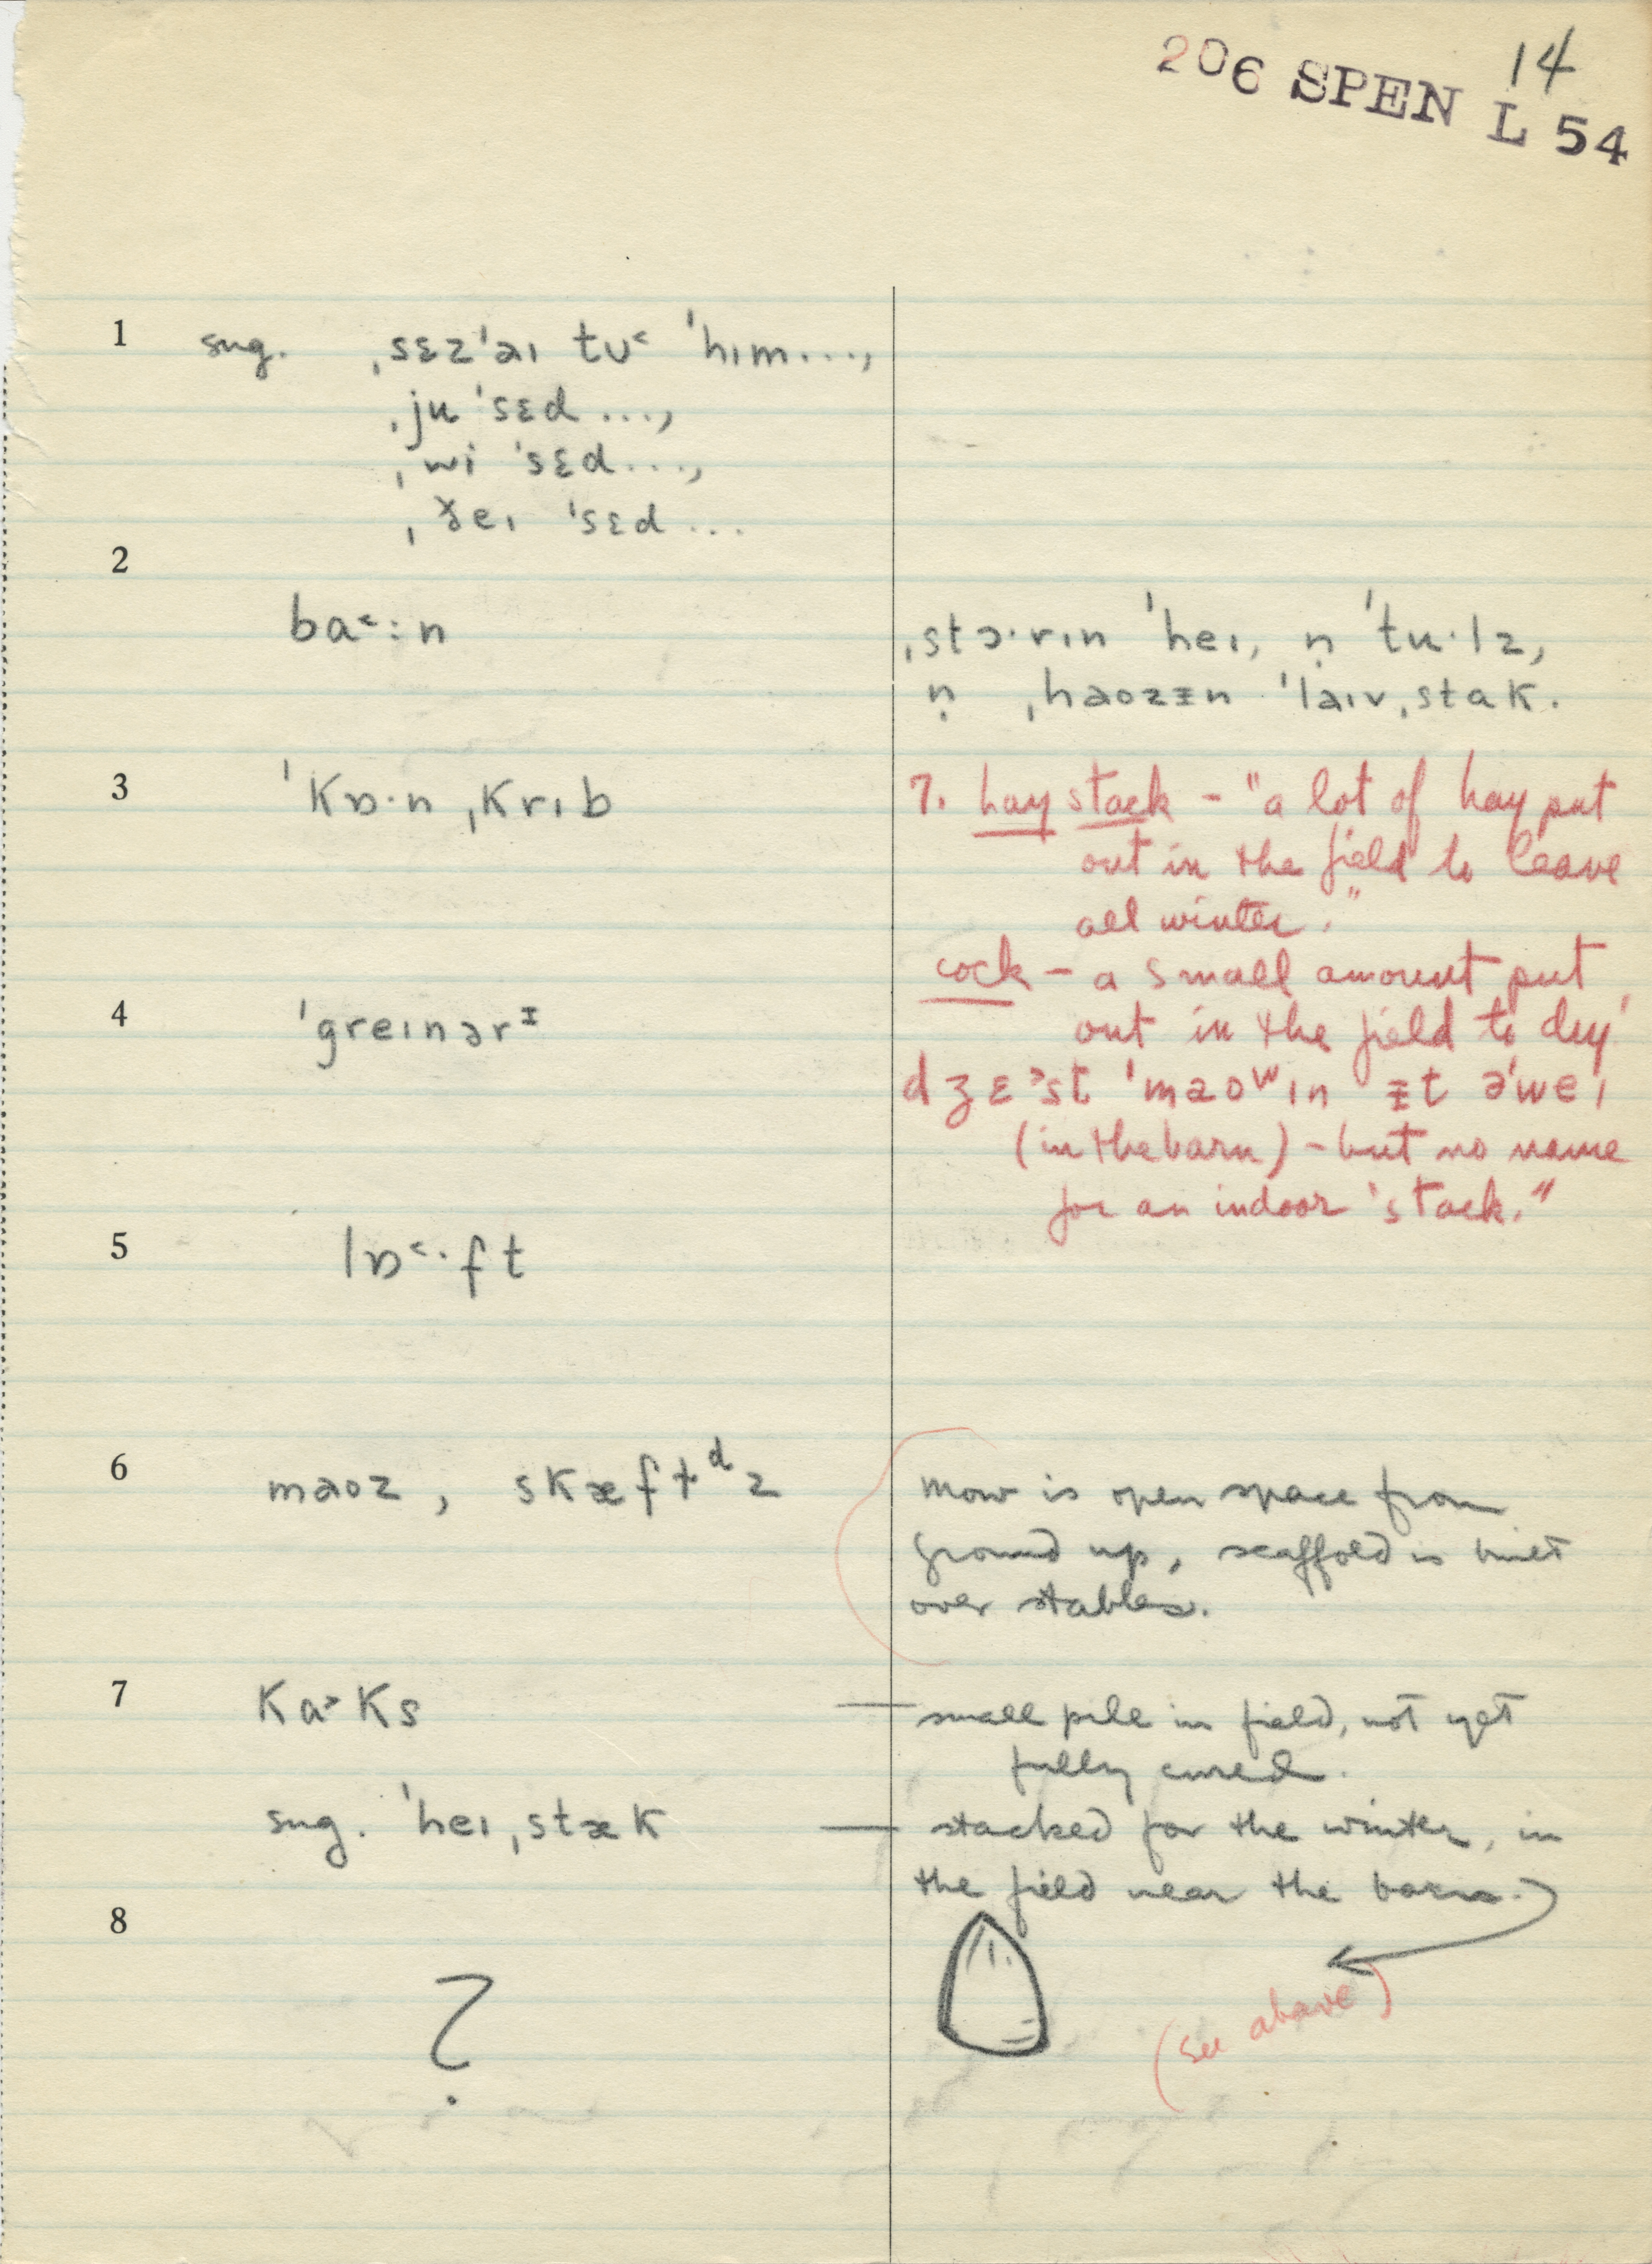 14
206 SPEN L 54
1 sug. ˌsɛz'aɪ tʊ˂ 'hɪm...,
ˌju 'sɛd ...,
ˌwi 'sɛd ...,
ˌðeɪ 'sɛd ...
2
ba˂:n
ˌstɔ·rɪn 'heɪ, n̩ 'tu·lz,
n̩ ˌhaozɪ̵n 'laɪvˌstak.
3 'kɒ·nˌkrɪb
7. hay stack - "a lot of hay put
out in the field to leave
all winter."
cock - a small amount put
out in the field to dry'
4 'greɪnərɪ̵
dʒɛ˃st 'maoʷɪn ɪ̵t ə'weɪ
(in the barn) - but no name
for an indoor 'stack."
5 lɒ˂·ft
6 maoz, skæftᵈz
mow is open space from
ground up, scaffold is built
over stables.
7 ka˃ks — small pile in field, not yet
fully cured.
sug. 'heɪˌstæk — stacked for the winter, in
the field near the barn.)
8
?
(see above)